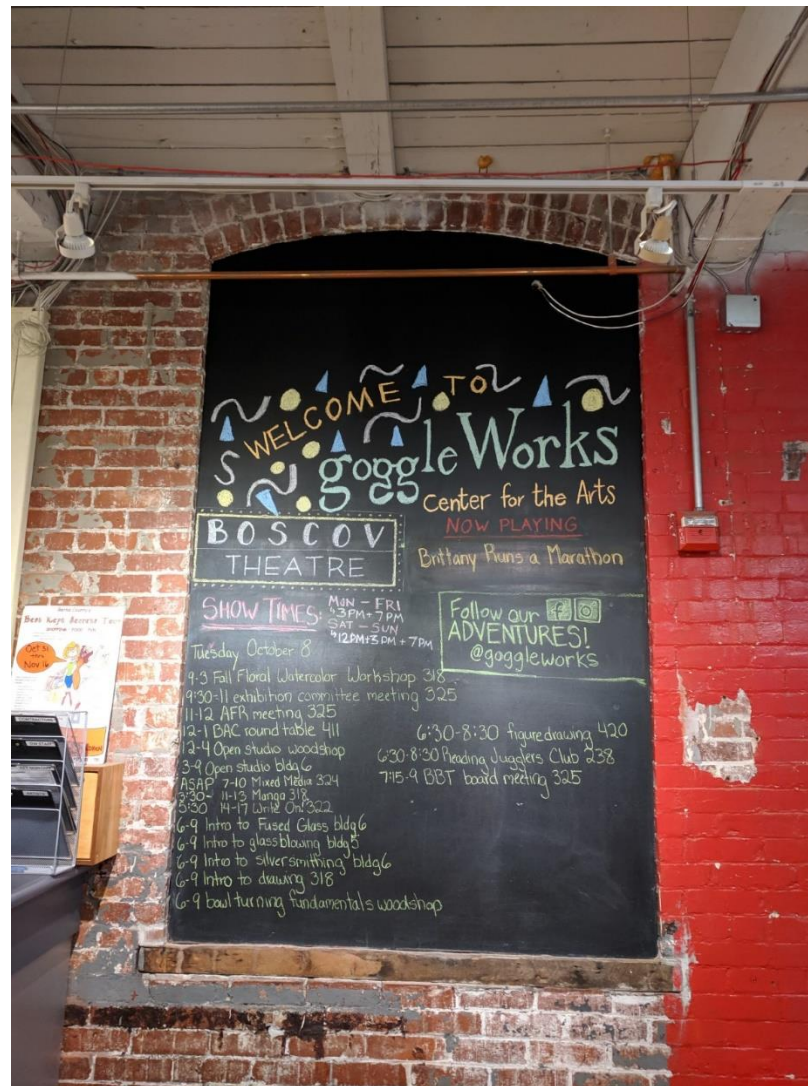 WELCOME TO
goggleWorks
Center for the Arts
NOW PLAYING
Brittany Runs a Marathon
BOSCOV
THEATRE
SHOW TIMES:
MON - FRI
3PM + 7PM
SAT - SUN
12PM + 3PM + 7PM
Follow our
ADVENTURES!
@goggleworks
Tuesday October 8
9-3 Fall Floral Watercolor Workshop 318
9:30-11 exhibition committee meeting 325
11-12 AFR meeting 325
12-1 BAC round table 411
12-4 Open studio woodshop
3-9 Open studio bldg 6
ASAP 7-10 Mixed Media 324
3:30- 11-13 Manga 318
5:30 14-17 Write On! 322
6-9 Intro to Fused Glass bldg 6
6-9 Intro to glassblowing bldg 5
6-9 Intro to silversmithing bldg 6
6-9 Intro to drawing 318
6-9 bowl turning fundamentals woodshop
6:30-8:30 figure drawing 420
6:30-8:30 Reading Jugglers Club 238
7:15-9 BBT board meeting 325
Oct 31
Nov 16